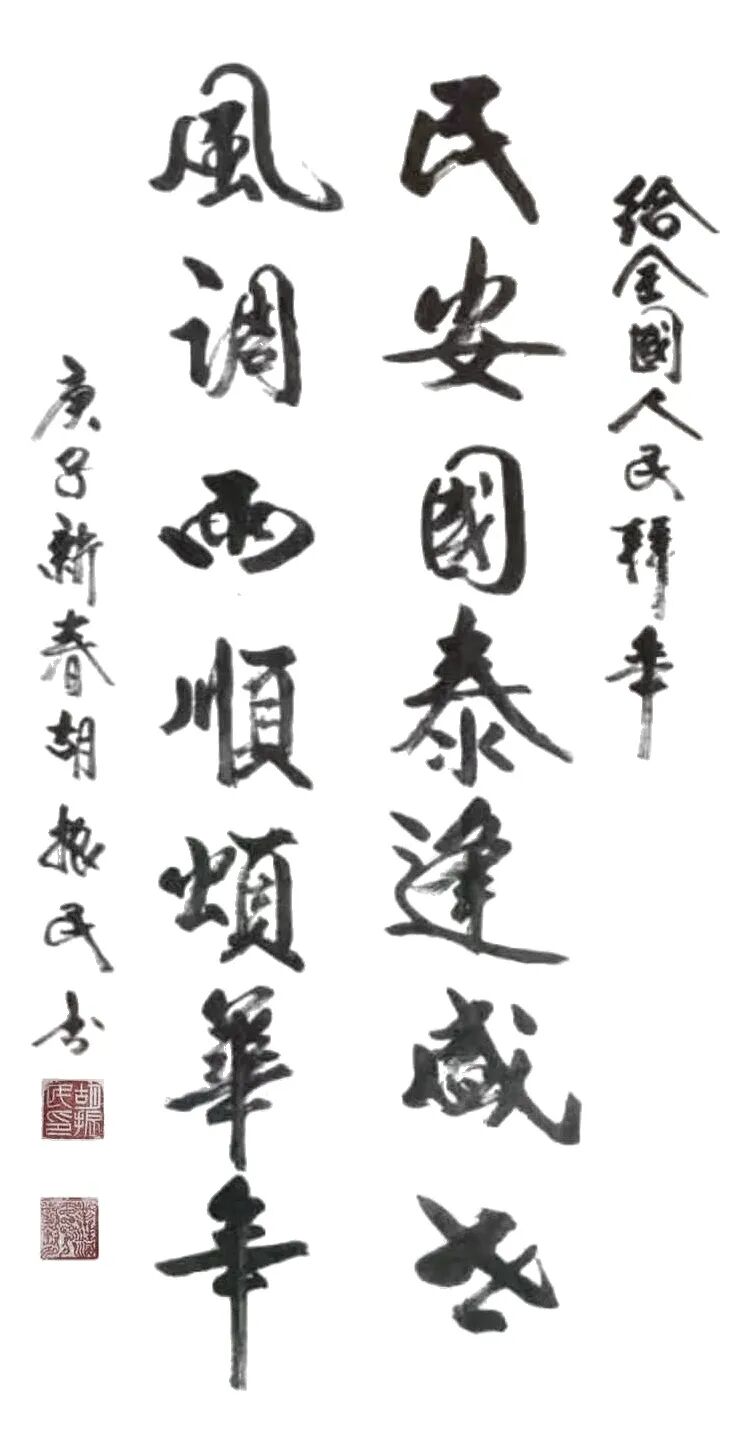 给全國人民拜年
民安國泰逢盛世
風调雨順頌華年
庚子新春胡振民书
胡振民印